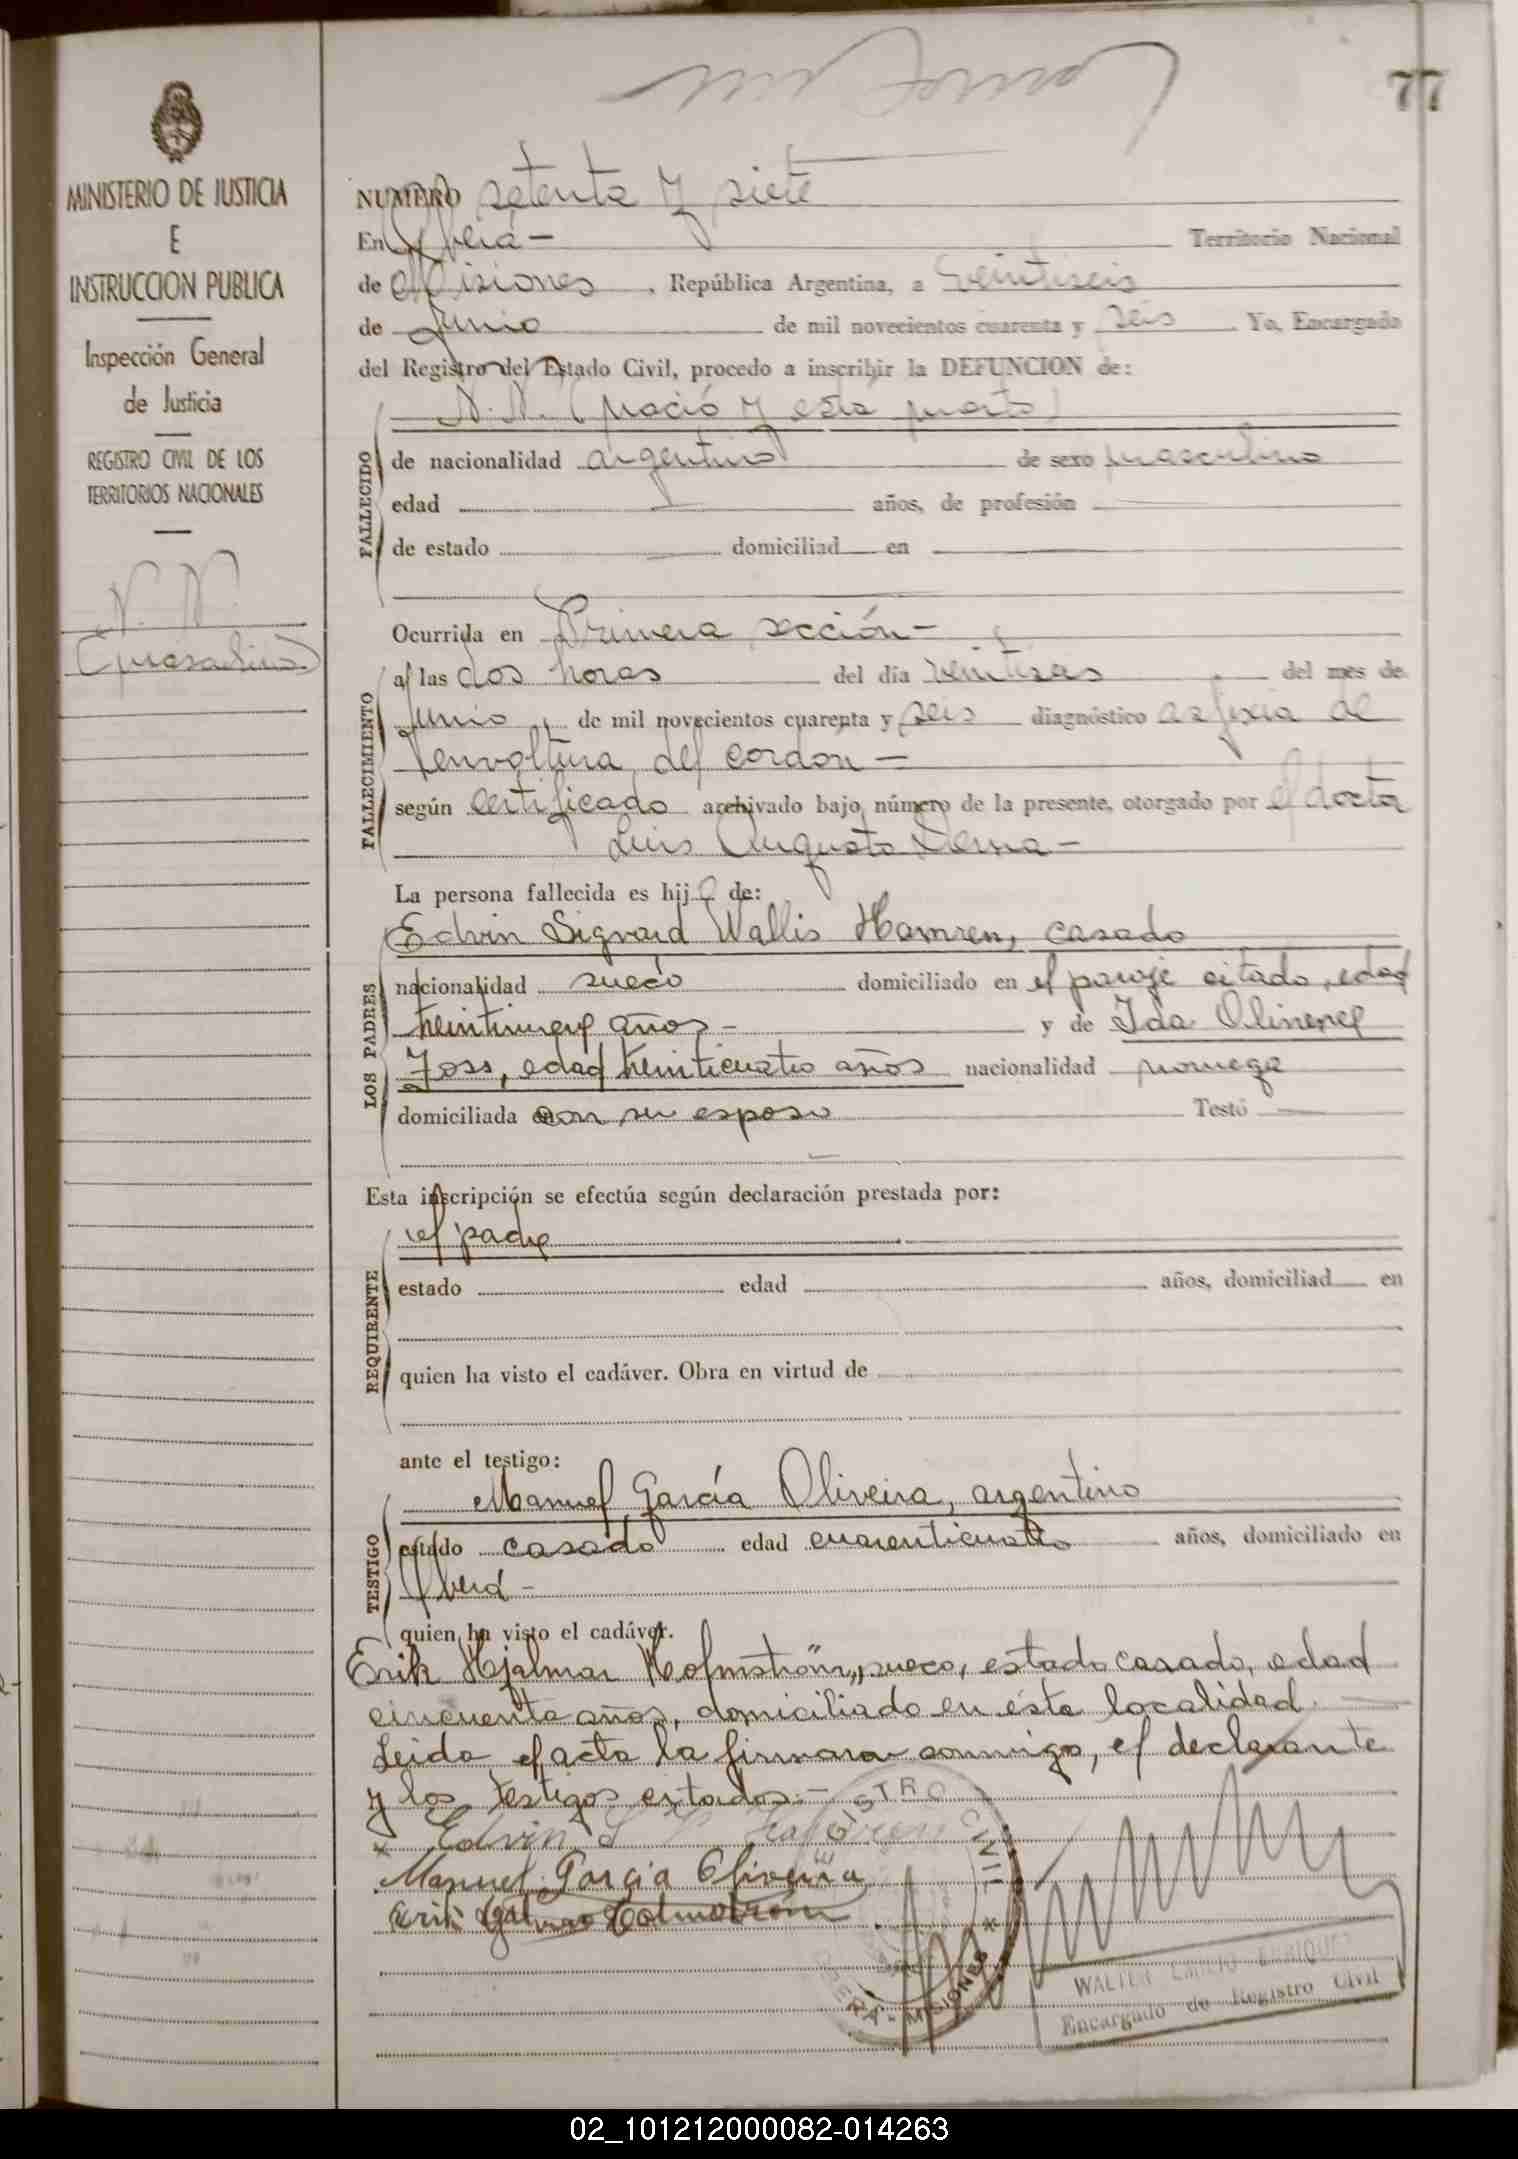 77
MINISTERIO DE JUSTICIA
E
INSTRUCCION PUBLICA
Inspección General
de Justicia
REGISTRO CIVIL DE LOS
TERRITORIOS NACIONALES
N. N.
(masculino)
NUMERO setenta y siete
En Oberá - Territorio Nacional
de Misiones, República Argentina, a veintiseis
de Junio de mil novecientos cuarenta y seis Yo, Encargado
del Registro del Estado Civil, procedo a inscribir la DEFUNCION de:
N. N. (nació y esta muerto)
FALLECIDO
de nacionalidad argentino de sexo masculino
edad años, de profesión
de estado domiciliad en
Ocurrida en Primera sección -
FALLECIMIENTO
a las dos horas del día veintiseis del mes de
Junio, de mil novecientos cuarenta y seis diagnóstico asfixia de
envoltura del cordon -
según certificado archivado bajo número de la presente, otorgado por el doctor
Luis Augusto
La persona fallecida es hijo de:
LOS PADRES
Edvin Sigvard Wallis Hamren, casado
nacionalidad sueco domiciliado en el paraje citado, edad
treintinueve años - y de Ida
Foss, edad treinticuatro años nacionalidad noruega
domiciliada con su esposo Testó
Esta inscripción se efectúa según declaración prestada por:
REQUIRENTE
el padre
estado edad años, domiciliad en
quien ha visto el cadáver. Obra en virtud de
ante el testigo:
TESTIGO
Manuel García Oliveira, argentino
estado casado edad cuarenticuatro años, domiciliado en
Oberá -
quien ha visto el cadáver.
Erik Hjalmar Holmström, sueco, estado casado, edad
cincuenta años, domiciliado en ésta localidad.
Leida el acta la firmaron conmigo, el declarante
y los testigos citados. -
Edvin S W Hamren
Manuel Garcia Oliveira
Erik Hjalmar Holmström
REGISTRO CIVIL
OBERÁ - MISIONES
WALTER EMILIO ENRIQUEZ
Encargado de Registro Civil
02_101212000082-014263